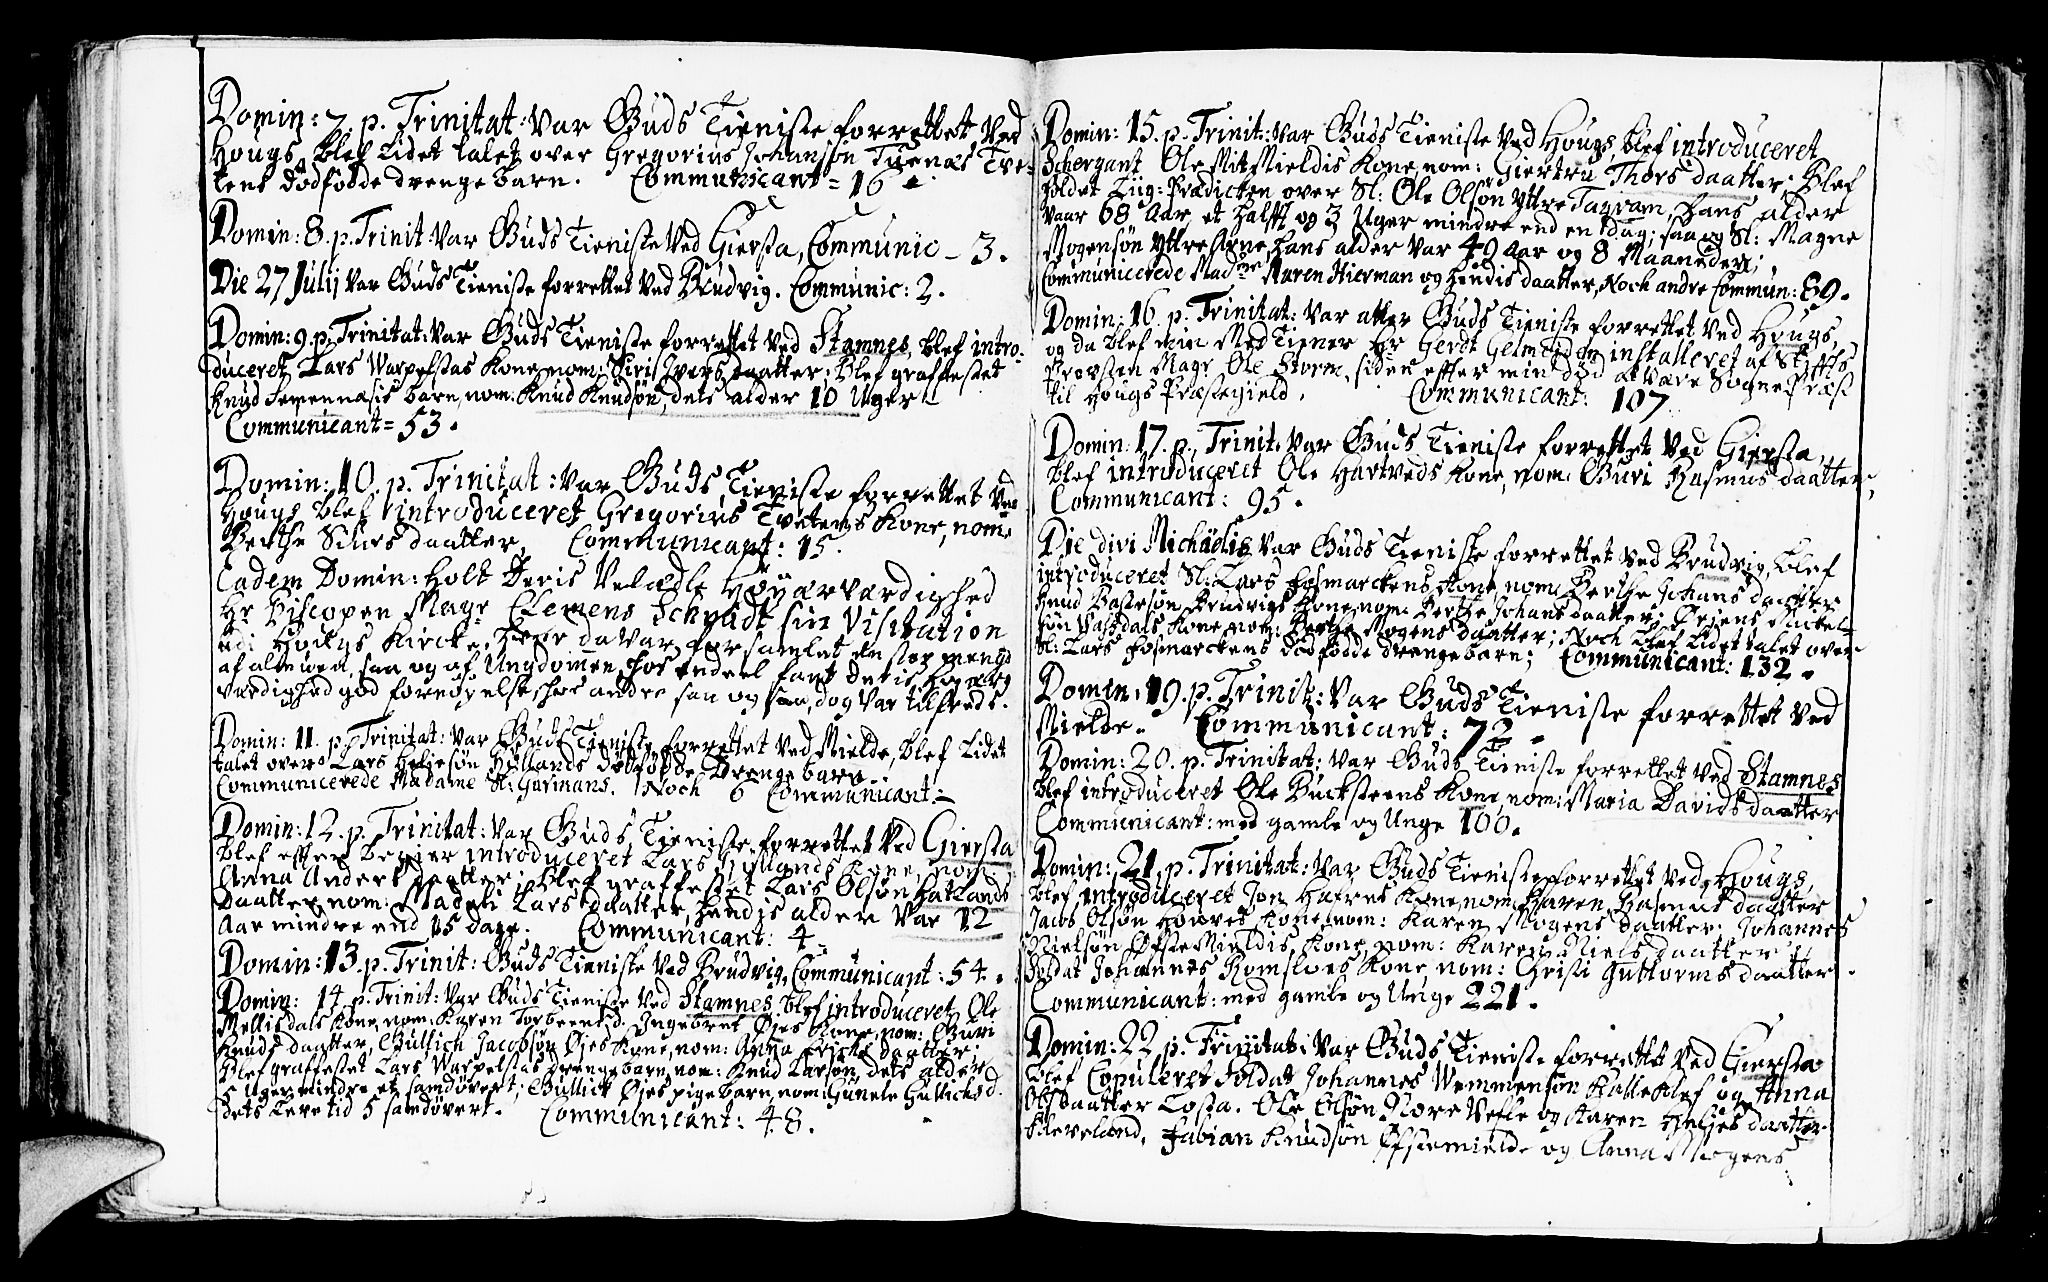 Domin: 7. p. Trinitat: var Guds Tieniste forrettet ved
Hougs, blef Lidet talet over Gregorius Johansøn Tuenæs Tve-
tens dødfødde drenge barn. Communicant = 16.
Domin: 8. p. Trinit: var Guds Tieniste ved Giersta, Communic - 3.
Die 27 Julij var Guds Tieniste forrettet ved Brudvig. Communic: 2.
Domin: 9. p. Trinitat: var Guds Tieniste forrettet ved Stamnes, blef intro-
duceret Lars Warpelstas Kone nom: Siri Ivers daatter; blef graffestet
Knud barn, nom: Knud Knudsøn, dets alder 10 Uger
Communicant = 53.
Domin: 10. p. Trinitat: var Guds Tieniste forrettet ved
Hougs blef introduceret Gregorius Tvetens Kone, nom:
Berthe Siurs daatter, Communicant: 15.
Eadem Domin: holt Deris Velædle Høyærværdighed
Hr Biscopen Magr Clemens Schmidt sin Visitation
udi Hougs Kircke, hvor da var forsamlet en stor mengd
af almuen, saa og af Ungdommen, hos endeel fant deris høyærv
værdighed god fornøyelse, hos andre saa og saa, dog var tilfreds.
Domin: 11. p. Trinitat: var Guds Tieniste forrettet ved Mielde, blef Lidet
talet over Lars Heljesøn Hyllands dødfødde drenge barn.
Communicerede Madame Sl: Garmans. Noch 6 Communicant:
Domin: 12. p. Trinitat: var Guds Tieniste forrettet ved Giersta
blef effter begier introduceret Lars Hyllands Kone, nom:
Anna Anders daatter; blef graffestet Lars Olsøn Hatlands
Daatter nom: Madeli Lars daatter, hendis alder var 12
Aar mindre end 15 dage. Communicant: 4
Domin: 13. p. Trinit: Guds Tieniste ved Brudvig, Communicant: 54.
Domin: 14 p. Trinit: var Guds Tieniste ved Stamnes, blef introduceret Ole
Mellisdals Kone, nom: Karen Torbeensd: Ingebret Øjes Kone, nom: Guri
Knuds daatter, Gullich Jacobsøn Øjes Kone, nom: Anna Erichs daatter;
blef graffestet Lars Warpelstas drengebarn, nom: Knud Larsøn, dets alder
5 Uger mindre et samdøvert; Gullick Øjes pige barn, nom: Gunele Gullicksd.
dets Leve tid 5 samdøvert. Communicant: 48.
Domin: 15. p. Trinit: var Guds Tieniste ved Hougs, blef introduceret
Schergant Ole MitMieldis Kone, nom: Giertru Thors daatter. Blef
holdet Liig-Prædicken over Sl: Ole Olsøn Yttre Tayram, hans alder
vaar 68 Aar et halfft og 3 Uger mindre end en dag; saa og Sl: Magne
Mogensøn Yttre Arne, hans alder var 40 Aar og 8 Maaneder;
Communicerede Madme Maren Hierman og hendis daatter, Noch andre Commun: 89.
Domin: 16. p. Trinitat: var atter Guds Tieniste forrettet ved Hougs,
og da blef min Med Tiener Hr Gerdt Geelmeiden installeret af
Provsten Magr Ole Storm, siden effter min død at være Sogne Præst
til Hougs Præstegield. Communicant: 107
Domin: 17. p. Trinit. var Guds Tieniste forrettet ved Giersta,
blef introduceret Ole Hartveds Kone, nom: Guri Rasmus daatter,
Communicant: 95.
Die divi Michäelis var Guds Tieniste forrettet ved Brudvig, blef
introduceret Sl: Lars Fosmarckens Kone, nom: Berthe Johans daatter
Knud Bastesøn Brudvigs Kone, nom: Berthe Johans daatter; Ørjens Mickel-
søn Kone, nom: Berthe Mogens daatter; Noch blef Lidet talet over
Sl: Lars Fosmarckens dødfødde drengebarn; Communicant: 132.
Domin: 19. p. Trinit: var Guds Tieniste forrettet ved
Mielde. Communicant: 72.
Domin: 20. p. Trinitat: var Guds Tieniste forrettet ved Stamnes
blef introduceret Ole Bucksteens Kone, nom: Maria Davids daatter
Communicant: med gamle og Unge 100.
Domin: 21. p. Trinitat: var Guds Tieniste forrettet ved Hougs,
blef introduceret Jon Hafres Kone, nom: Karen Rasmus daatter
Jacob Olsøn Kone, nom: Karen Mogens daatter. Johannes
Nielsøn ØfsteMieldis Kone, nom: Karen Niels daatter
Soldat Johannes Romsloes Kone, nom: Christi Guttorms daatter.
Communicant: med gamle og Unge 221.
Domin: 22. p. Trinitat: var Guds Tieniste forrettet ved Giersta
blef Copuleret Soldat Johannes Wemmensøn Kalleklef og Anna
Olsdaatter Losta. Ole Olsøn Nore Vefle og Karen Heljes daatter
Kleveland, Fabian Knudsøn Øfstemielde og Anna Mogens